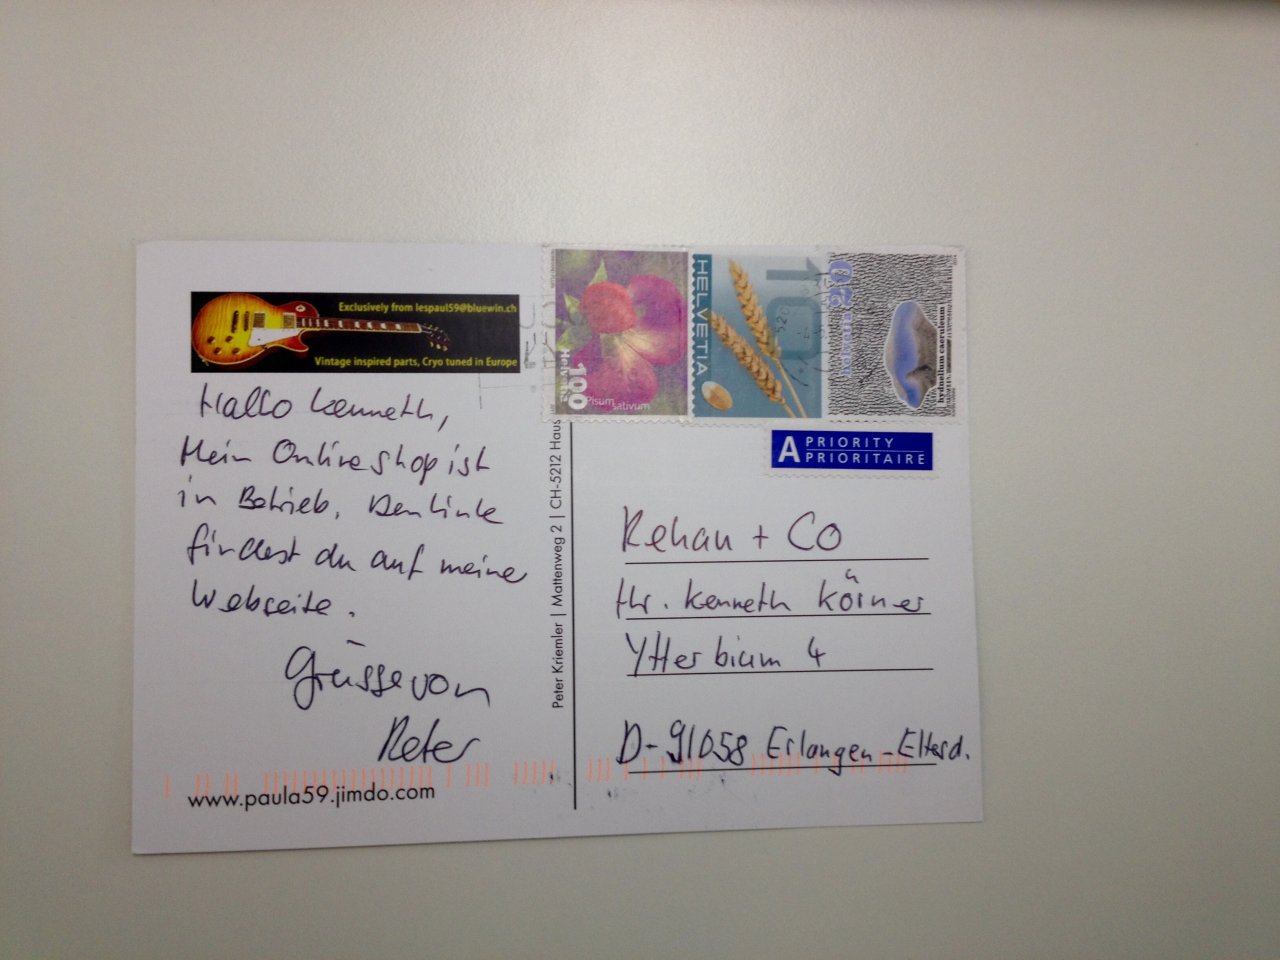 Exclusively from lespaul59@bluewin.ch
Vintage inspired parts, Cryo tuned in Europe
Hallo Kenneth,
Mein Onlineshop ist
in Betrieb. Den Link
findest du auf meine
Webseite.
Grüsse von
Peter
www.paula59.jimdo.com
Peter Kriemler | Mattenweg 2 | CH-5212 Haus
Helvetia 100
Pisum
sativum
HELVETIA
helvetia 20
hydnellum caeruleum
A PRIORITY
PRIORITAIRE
Rehau + CO
Hr. Kenneth Körner
Ytterbium 4
D-91058 Erlangen-Elterd.